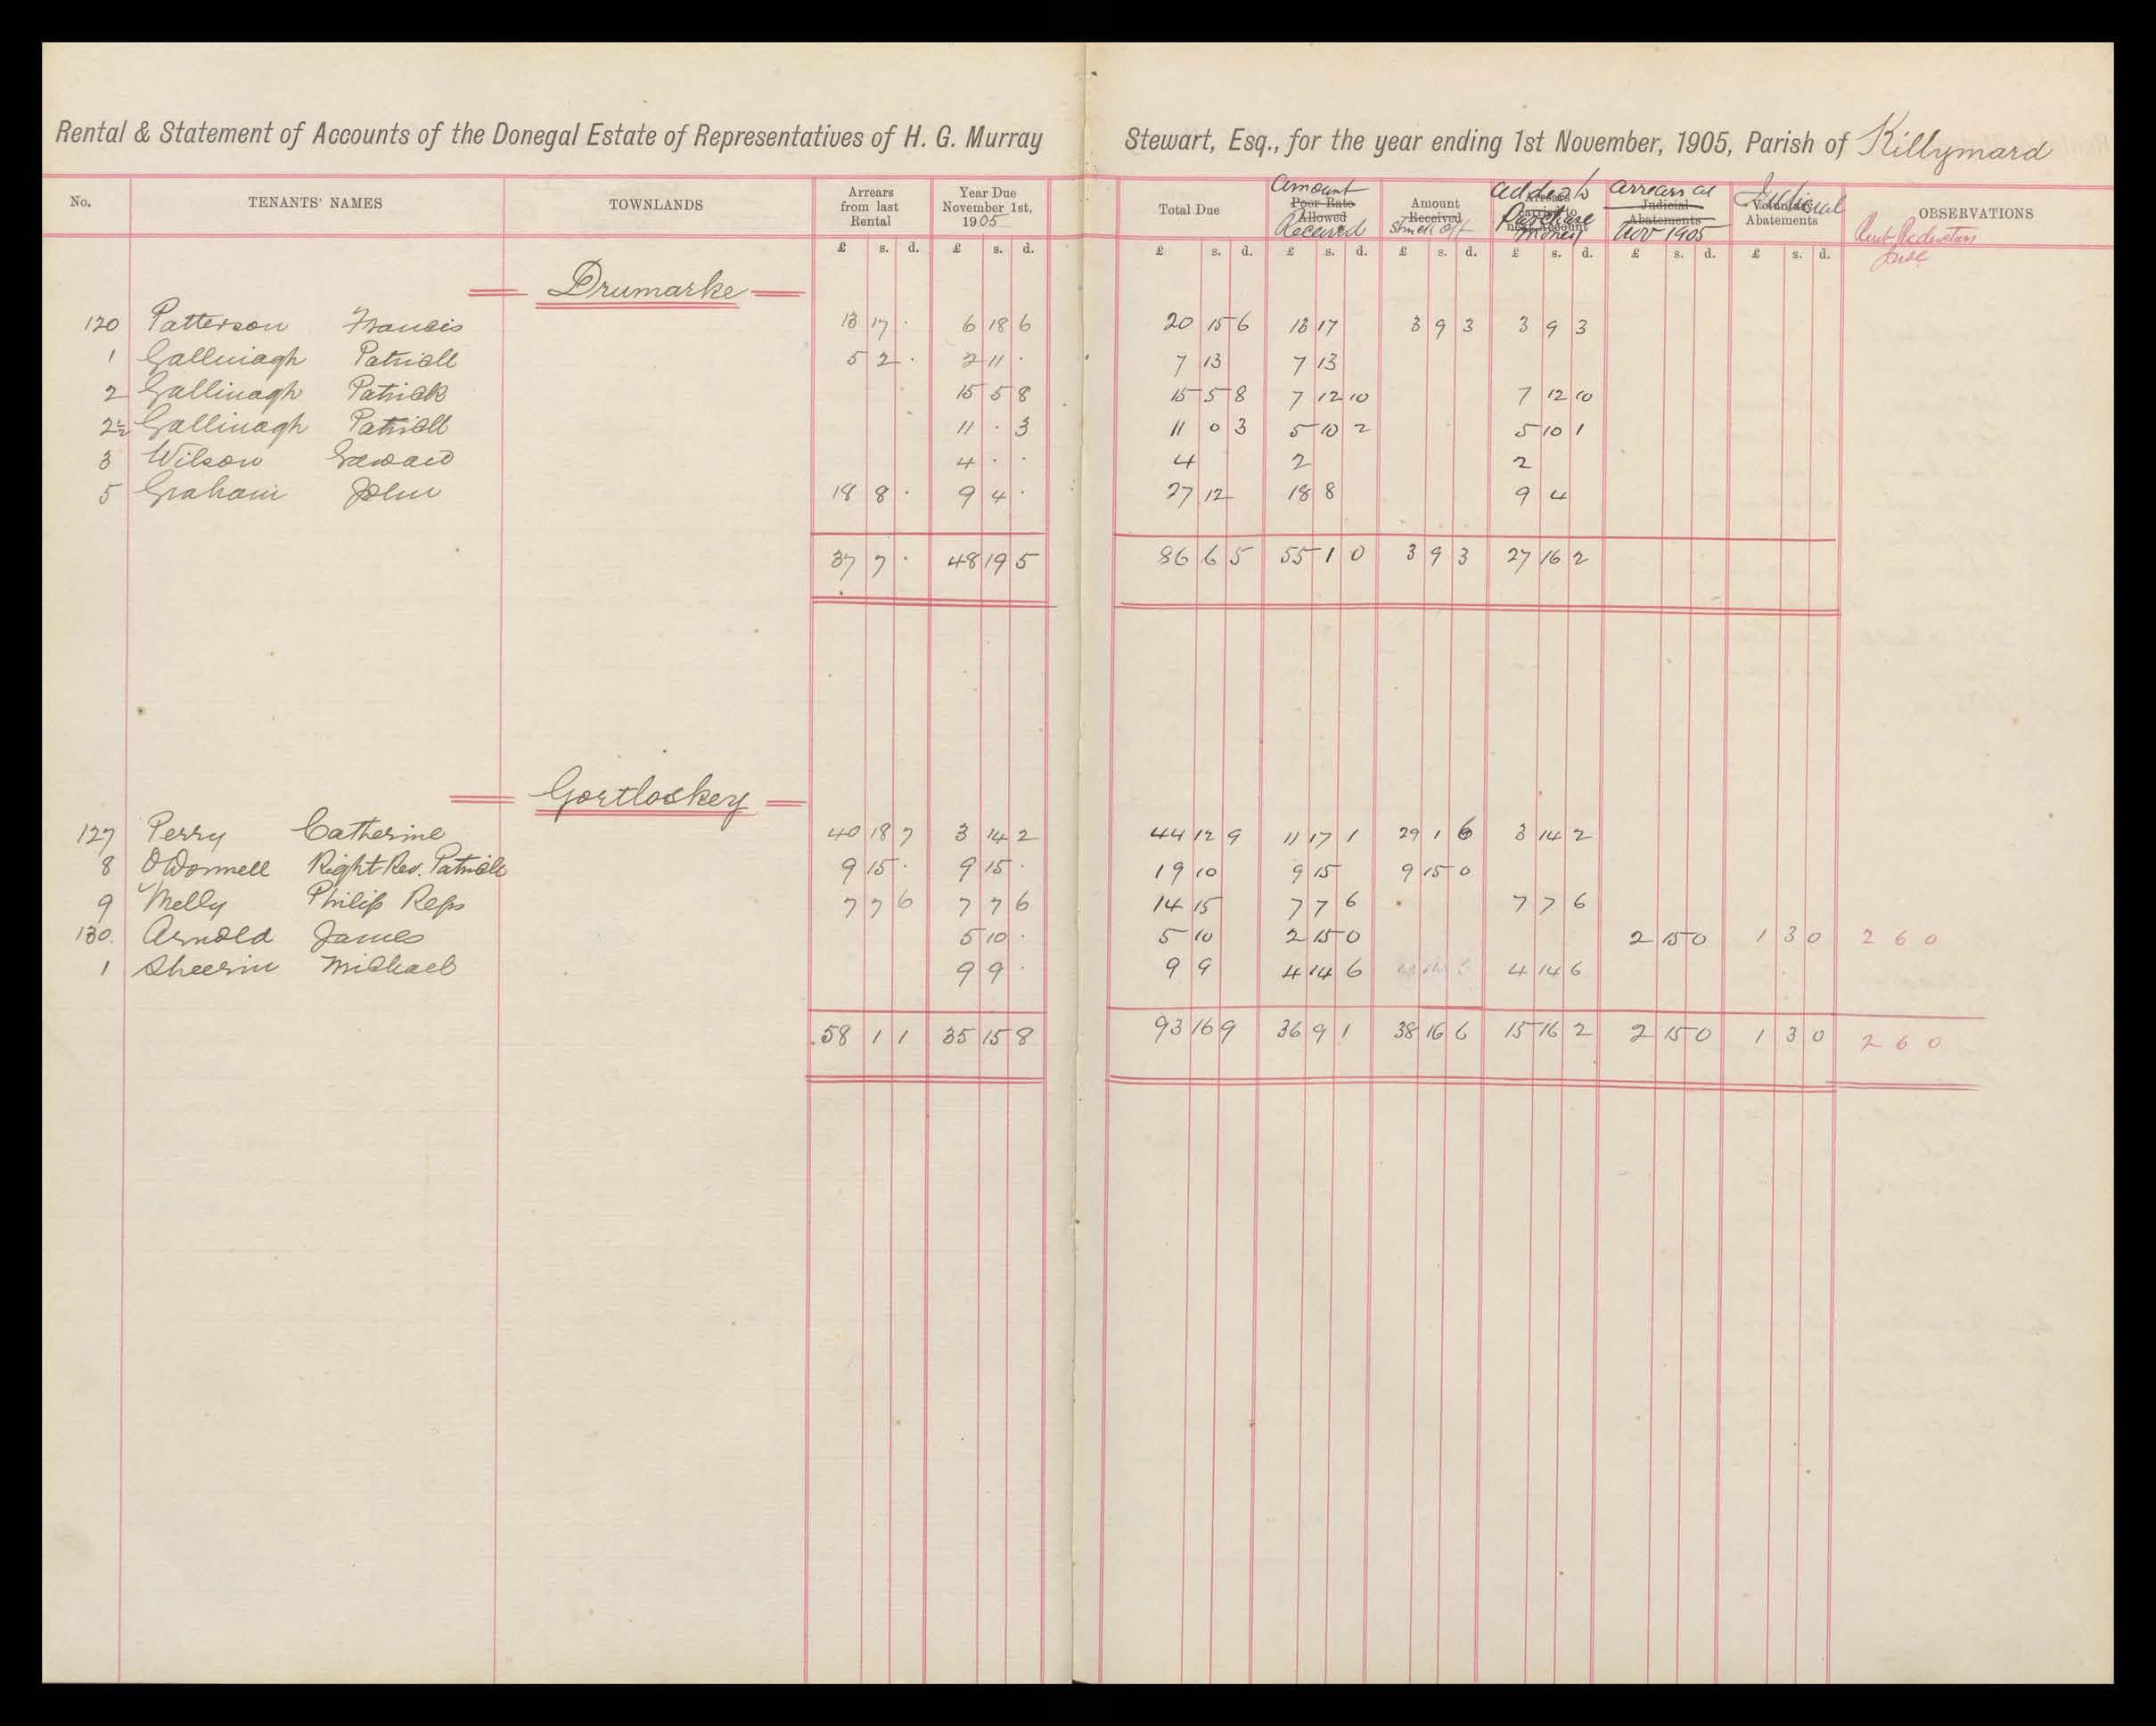 Rental & Statement of Accounts of the Donegal Estate of Representatives of H. G. Murray Stewart, Esq., for the year ending 1st November, 1905, Parish of Killymard
No. TENANTS' NAMES TOWNLANDS Arrears from last Rental Year Due November 1st, 1905 Total Due Amount Poor Rate Allowed Received Amount Received Struck off Added to Purchase Money Arrears at Judicial Abatements Nov 1905 Judicial Abatements OBSERVATIONS
£ s. d. £ s. d. £ s. d. £ s. d. £ s. d. £ s. d. £ s. d. £ s. d.
Drumarke
120 Patterson Francis 13 17 · 6 18 6 20 15 6 13 17 3 9 3 3 9 3
1 Gallinagh Patrick 5 2 · 2 11 · 7 13 7 13
2 Gallinagh Patrick 15 5 8 15 5 8 7 12 10 7 12 10
2½ Gallinagh Patrick 11 · 3 11 0 3 5 10 2 5 10 1
3 Wilson Edward 4 · · 4 2 2
5 Graham John 18 8 · 9 4 · 27 12 18 8 9 4
37 7 · 48 19 5 86 6 5 55 1 0 3 9 3 27 16 2
Gortloskey
127 Perry Catherine 40 18 7 3 14 2 44 12 9 11 17 1 29 1 6 3 14 2
8 O'Donnell Right Rev. Patrick 9 15 · 9 15 · 19 10 9 15 9 15 0
9 Melly Philip Reps 7 7 6 7 7 6 14 15 7 7 6 7 7 6
130. Arnold James 5 10 · 5 10 2 15 0 2 15 0 1 3 0 2 6 0
1 Sheerin Michael 9 9 · 9 9 4 14 6 4 14 6
58 1 1 35 15 8 93 16 9 36 9 1 38 16 6 15 16 2 2 15 0 1 3 0 2 6 0